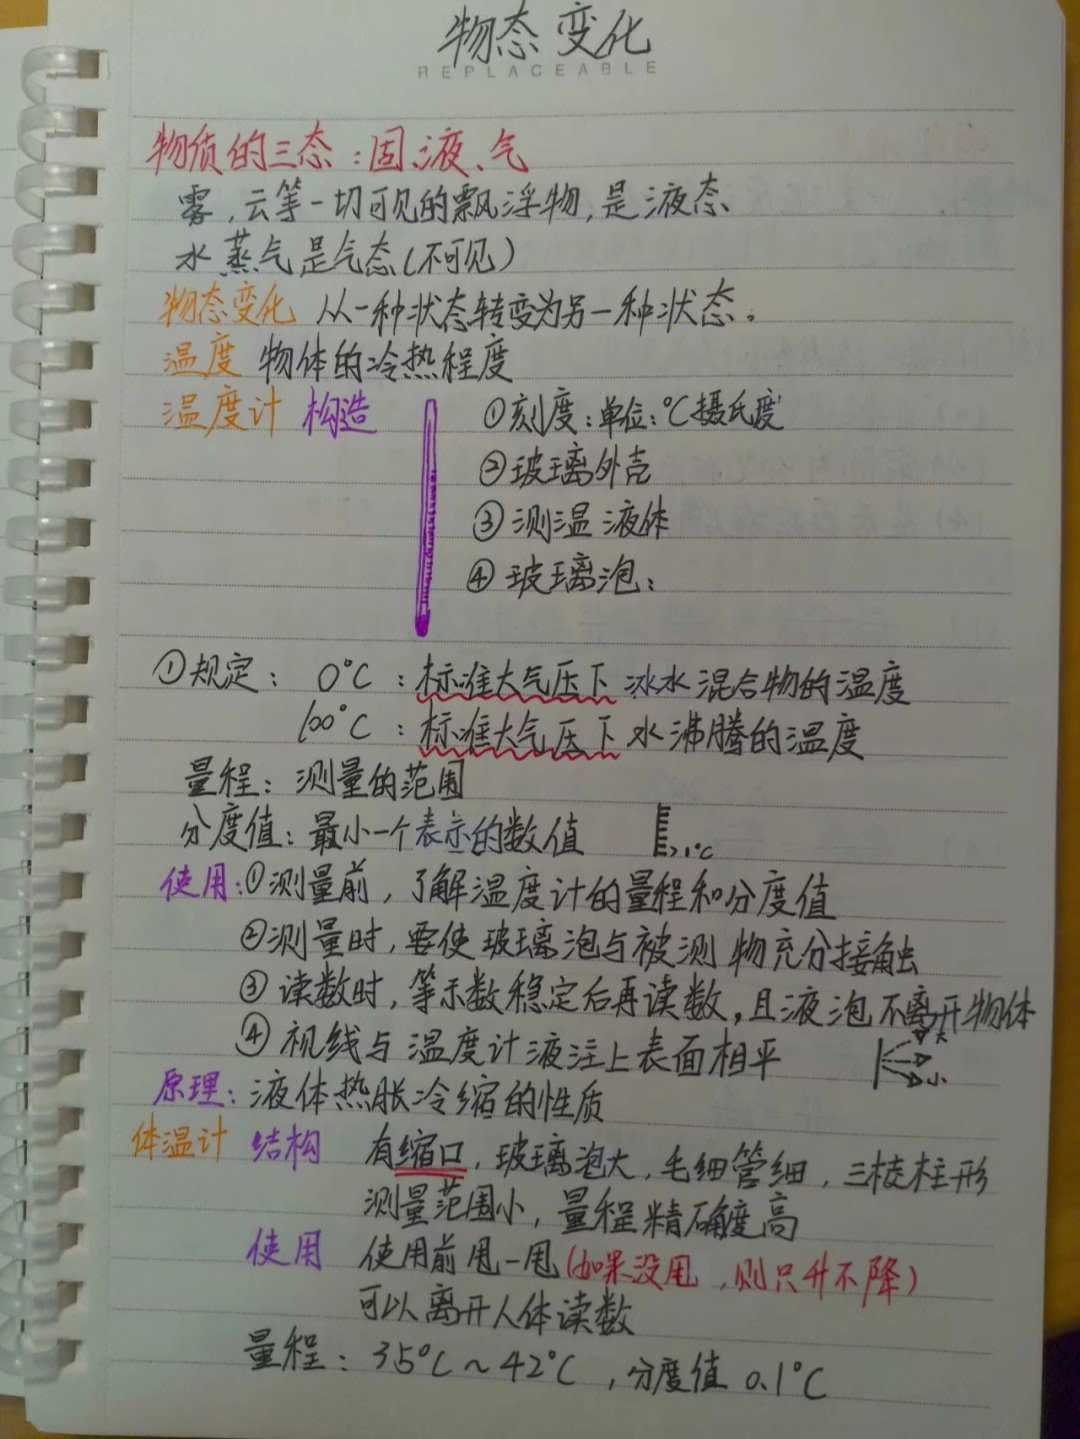 物态变化
REPLACEABLE
物质的三态：固、液、气
雾，云等一切可见的飘浮物，是液态
水蒸气是气态（不可见）
物态变化 从一种状态转变为另一种状态。
温度 物体的冷热程度
温度计 构造 ①刻度：单位：℃摄氏度
②玻璃外壳
③测温液体
④玻璃泡：
①规定： 0℃：标准大气压下冰水混合物的温度
100℃：标准大气压下水沸腾的温度
量程：测量的范围
分度值：最小一个表示的数值 1℃
使用：①测量前，了解温度计的量程和分度值
②测量时，要使玻璃泡与被测物充分接触
③读数时，等示数稳定后再读数，且液泡不离开物体
④视线与温度计液注上表面相平
大
小
原理：液体热胀冷缩的性质
体温计 结构 有缩口，玻璃泡大，毛细管细，三棱柱形
测量范围小，量程精确度高
使用 使用前甩一甩（如果没甩，则只升不降）
可以离开人体读数
量程：35℃~42℃，分度值 0.1℃